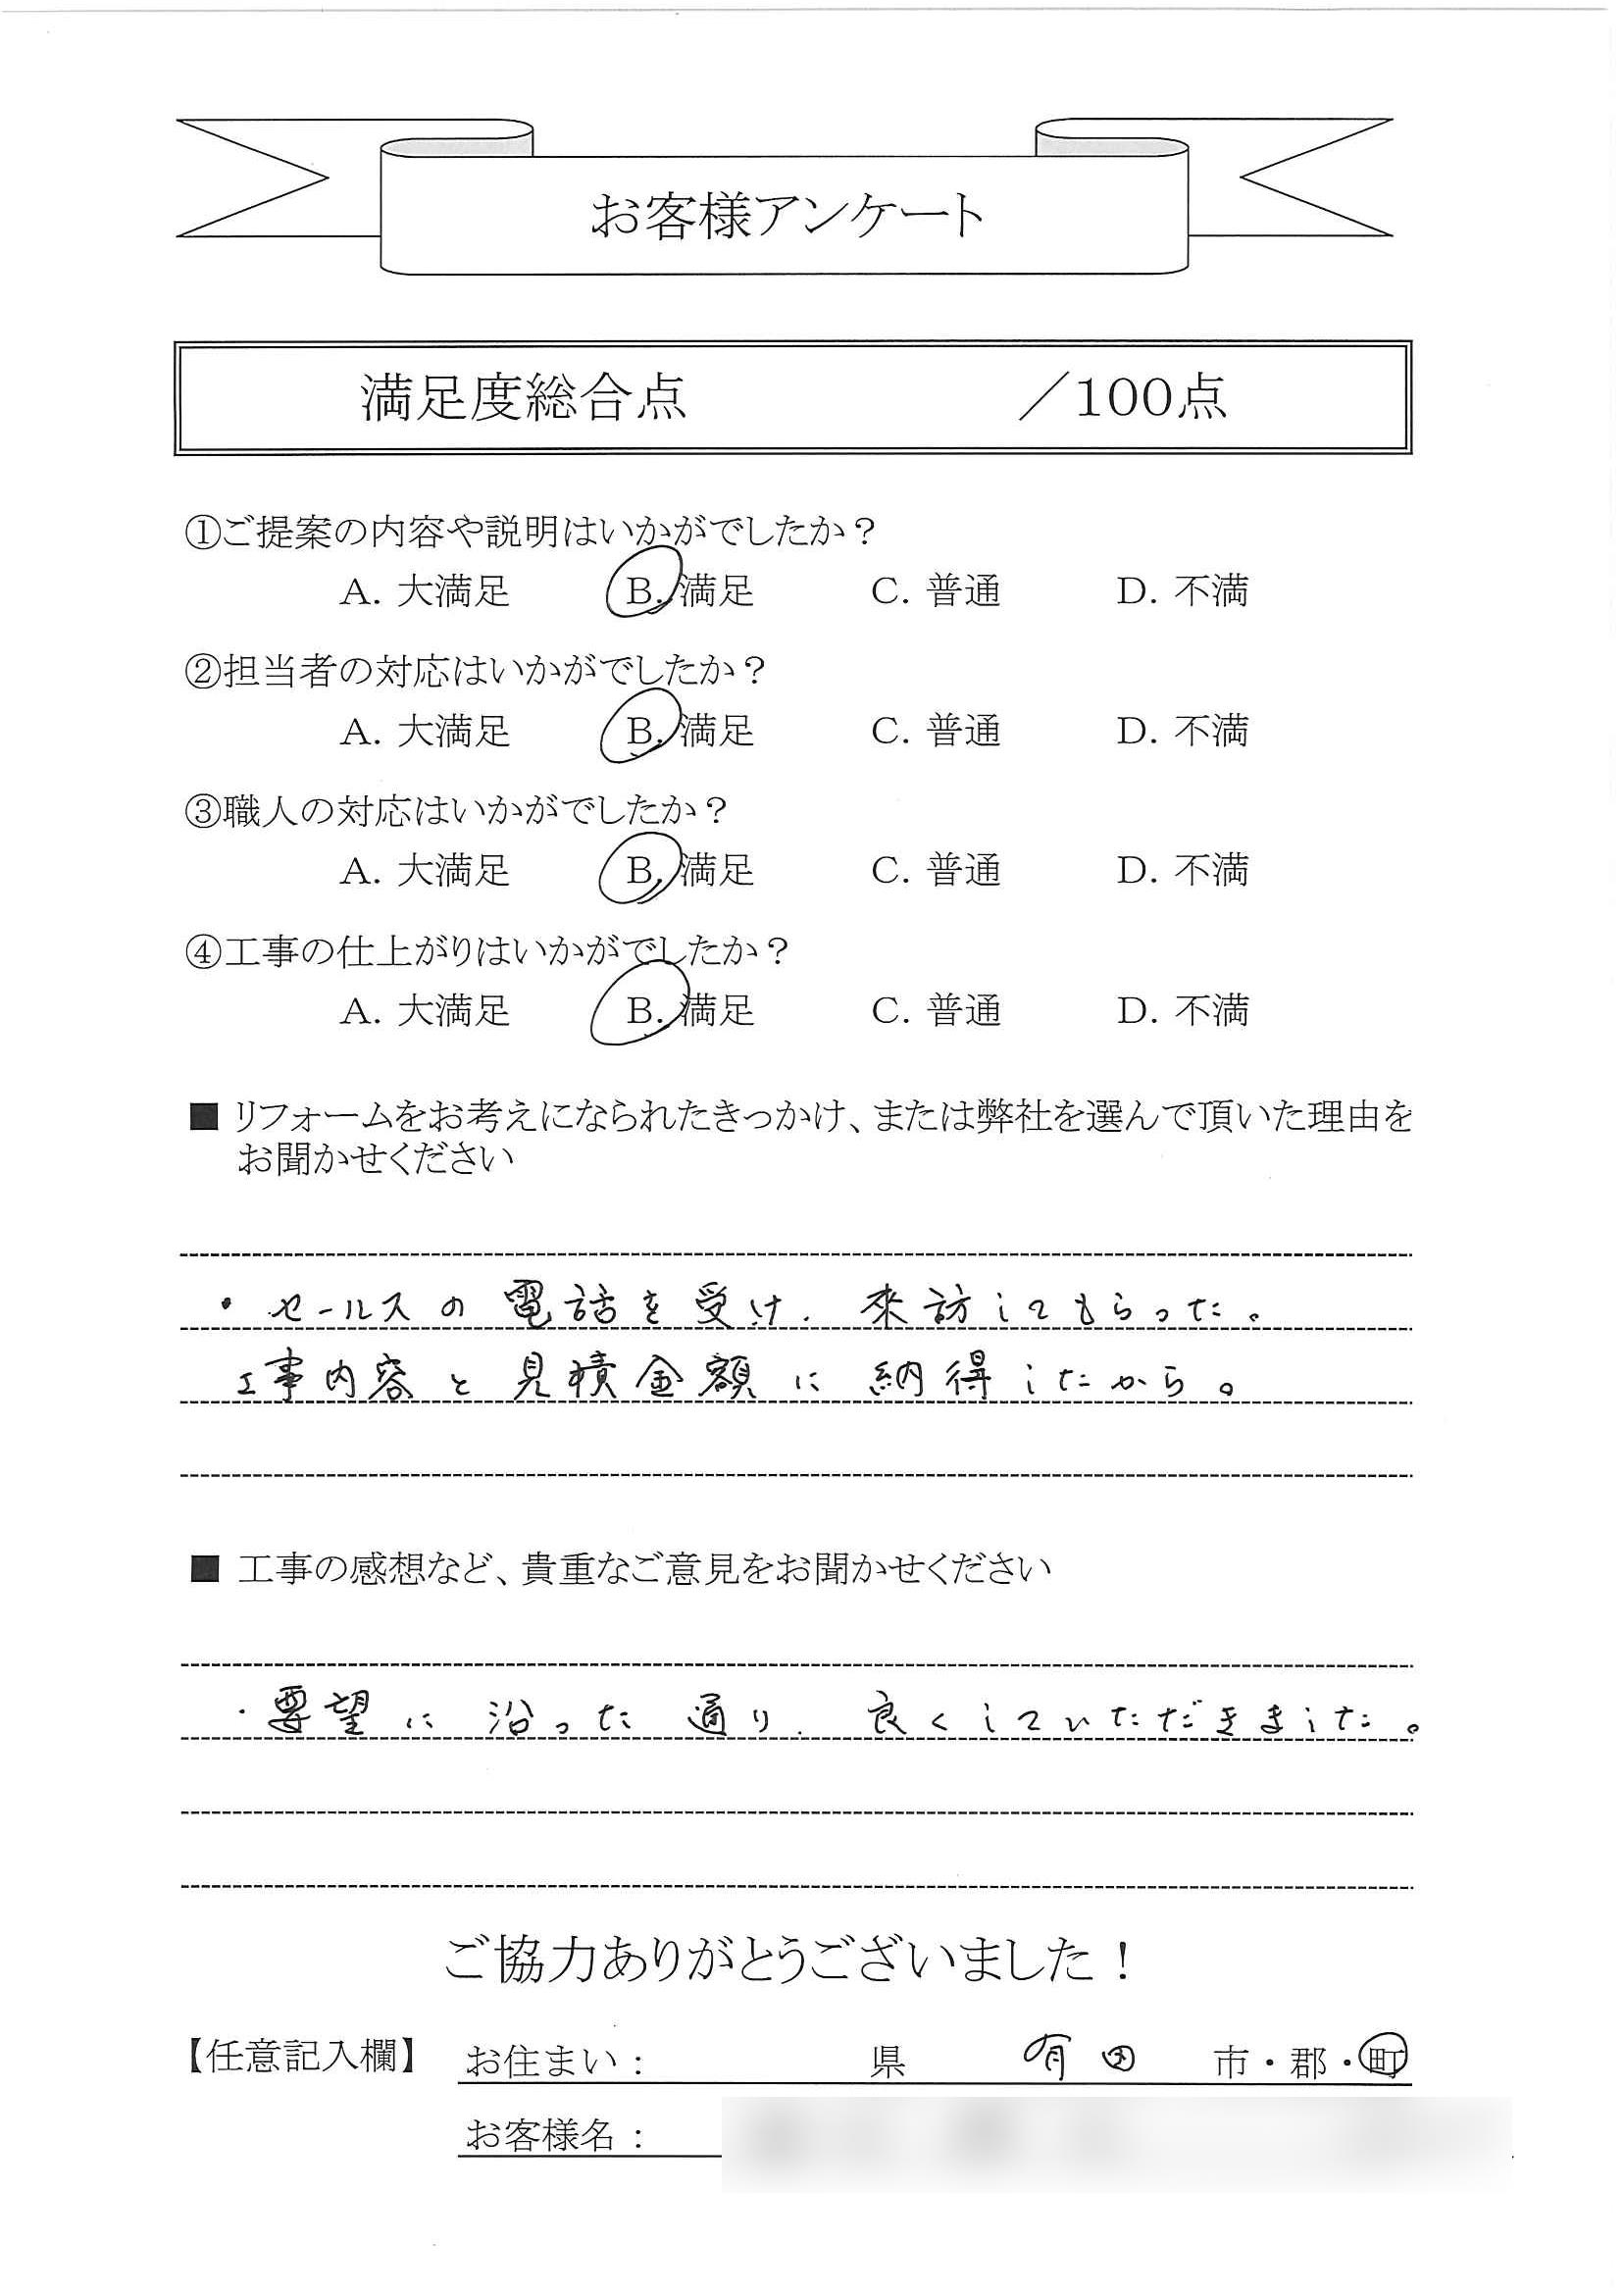 お客様アンケート
満足度総合点　／100点
①ご提案の内容や説明はいかがでしたか？
A. 大満足　B. 満足　C. 普通　D. 不満
②担当者の対応はいかがでしたか？
A. 大満足　B. 満足　C. 普通　D. 不満
③職人の対応はいかがでしたか？
A. 大満足　B. 満足　C. 普通　D. 不満
④工事の仕上がりはいかがでしたか？
A. 大満足　B. 満足　C. 普通　D. 不満
■ リフォームをお考えになられたきっかけ、または弊社を選んで頂いた理由を
お聞かせください
・セールスの電話を受け、来訪してもらった。
工事内容と見積金額に納得したから。
■ 工事の感想など、貴重なご意見をお聞かせください
・要望に沿った通り、良くしていただきました。
ご協力ありがとうございました！
【任意記入欄】　お住まい：　県　有田　市・郡・町
お客様名：